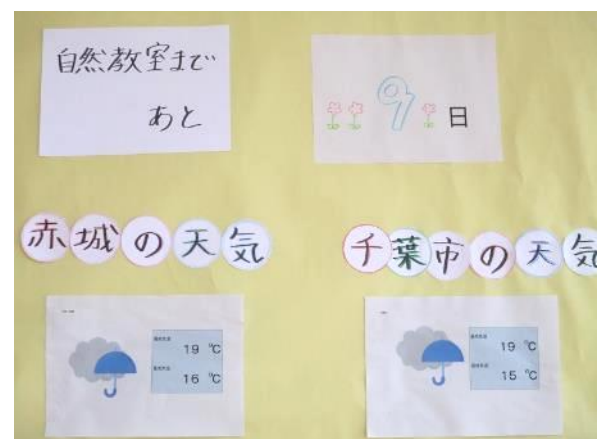 自然教室まで
あと
9日
赤城の天気
千葉市の天気
19 ℃
16 ℃
19 ℃
15 ℃